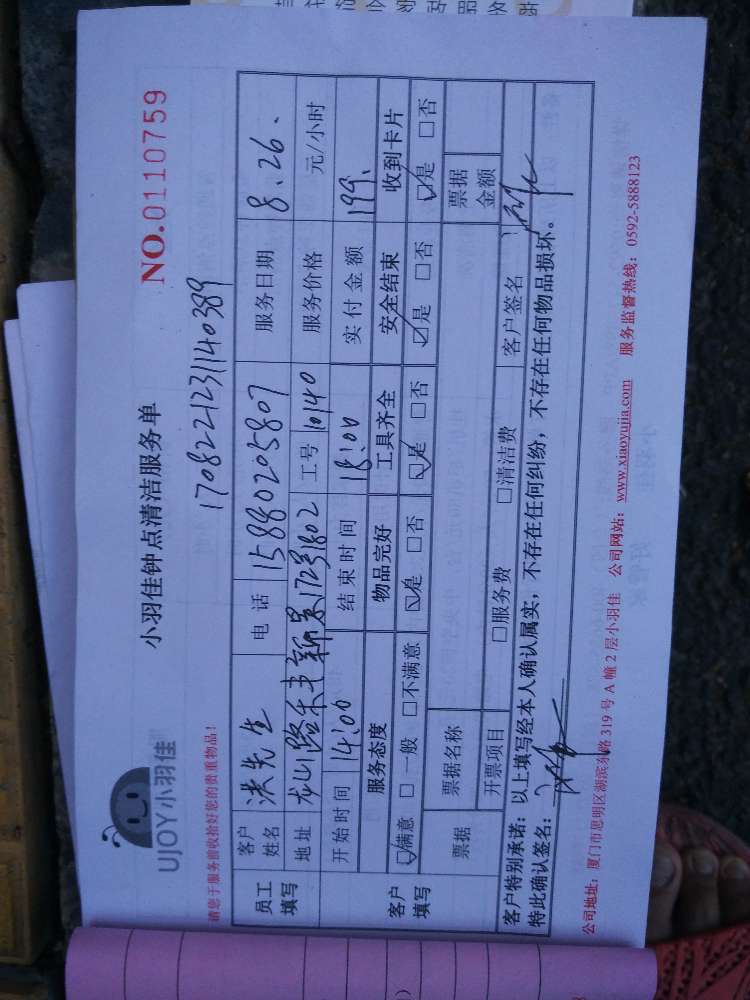 小羽佳钟点清洁服务单
NO.0110759
UJOY小羽佳
1708221231140389
请您于服务前收拾好您的贵重物品!
员工填写 客户姓名 洪先生 电话 15880205807 服务日期 8.26.
地址 龙山路禾丰新景17号1802 工号 10140 服务价格 元/小时
开始时间 14:00 结束时间 18:00 实付金额 199.
客户填写 服务态度 物品完好 工具齐全 安全结束 收到卡片
☑满意 □一般 □不满意 ☑是 □否 ☑是 □否 ☑是 □否 ☑是 □否
票据 票据名称 票据金额
开票项目 □服务费 □清洁费 客户签名
客户特别承诺:以上填写经本人确认属实,不存在任何纠纷,不存在任何物品损坏。
特此确认签名:
公司地址:厦门市思明区湖滨东路 319 号 A 幢 2 层小羽佳 公司网站:www.xiaoyujia.com 服务监督热线:0592-5888123